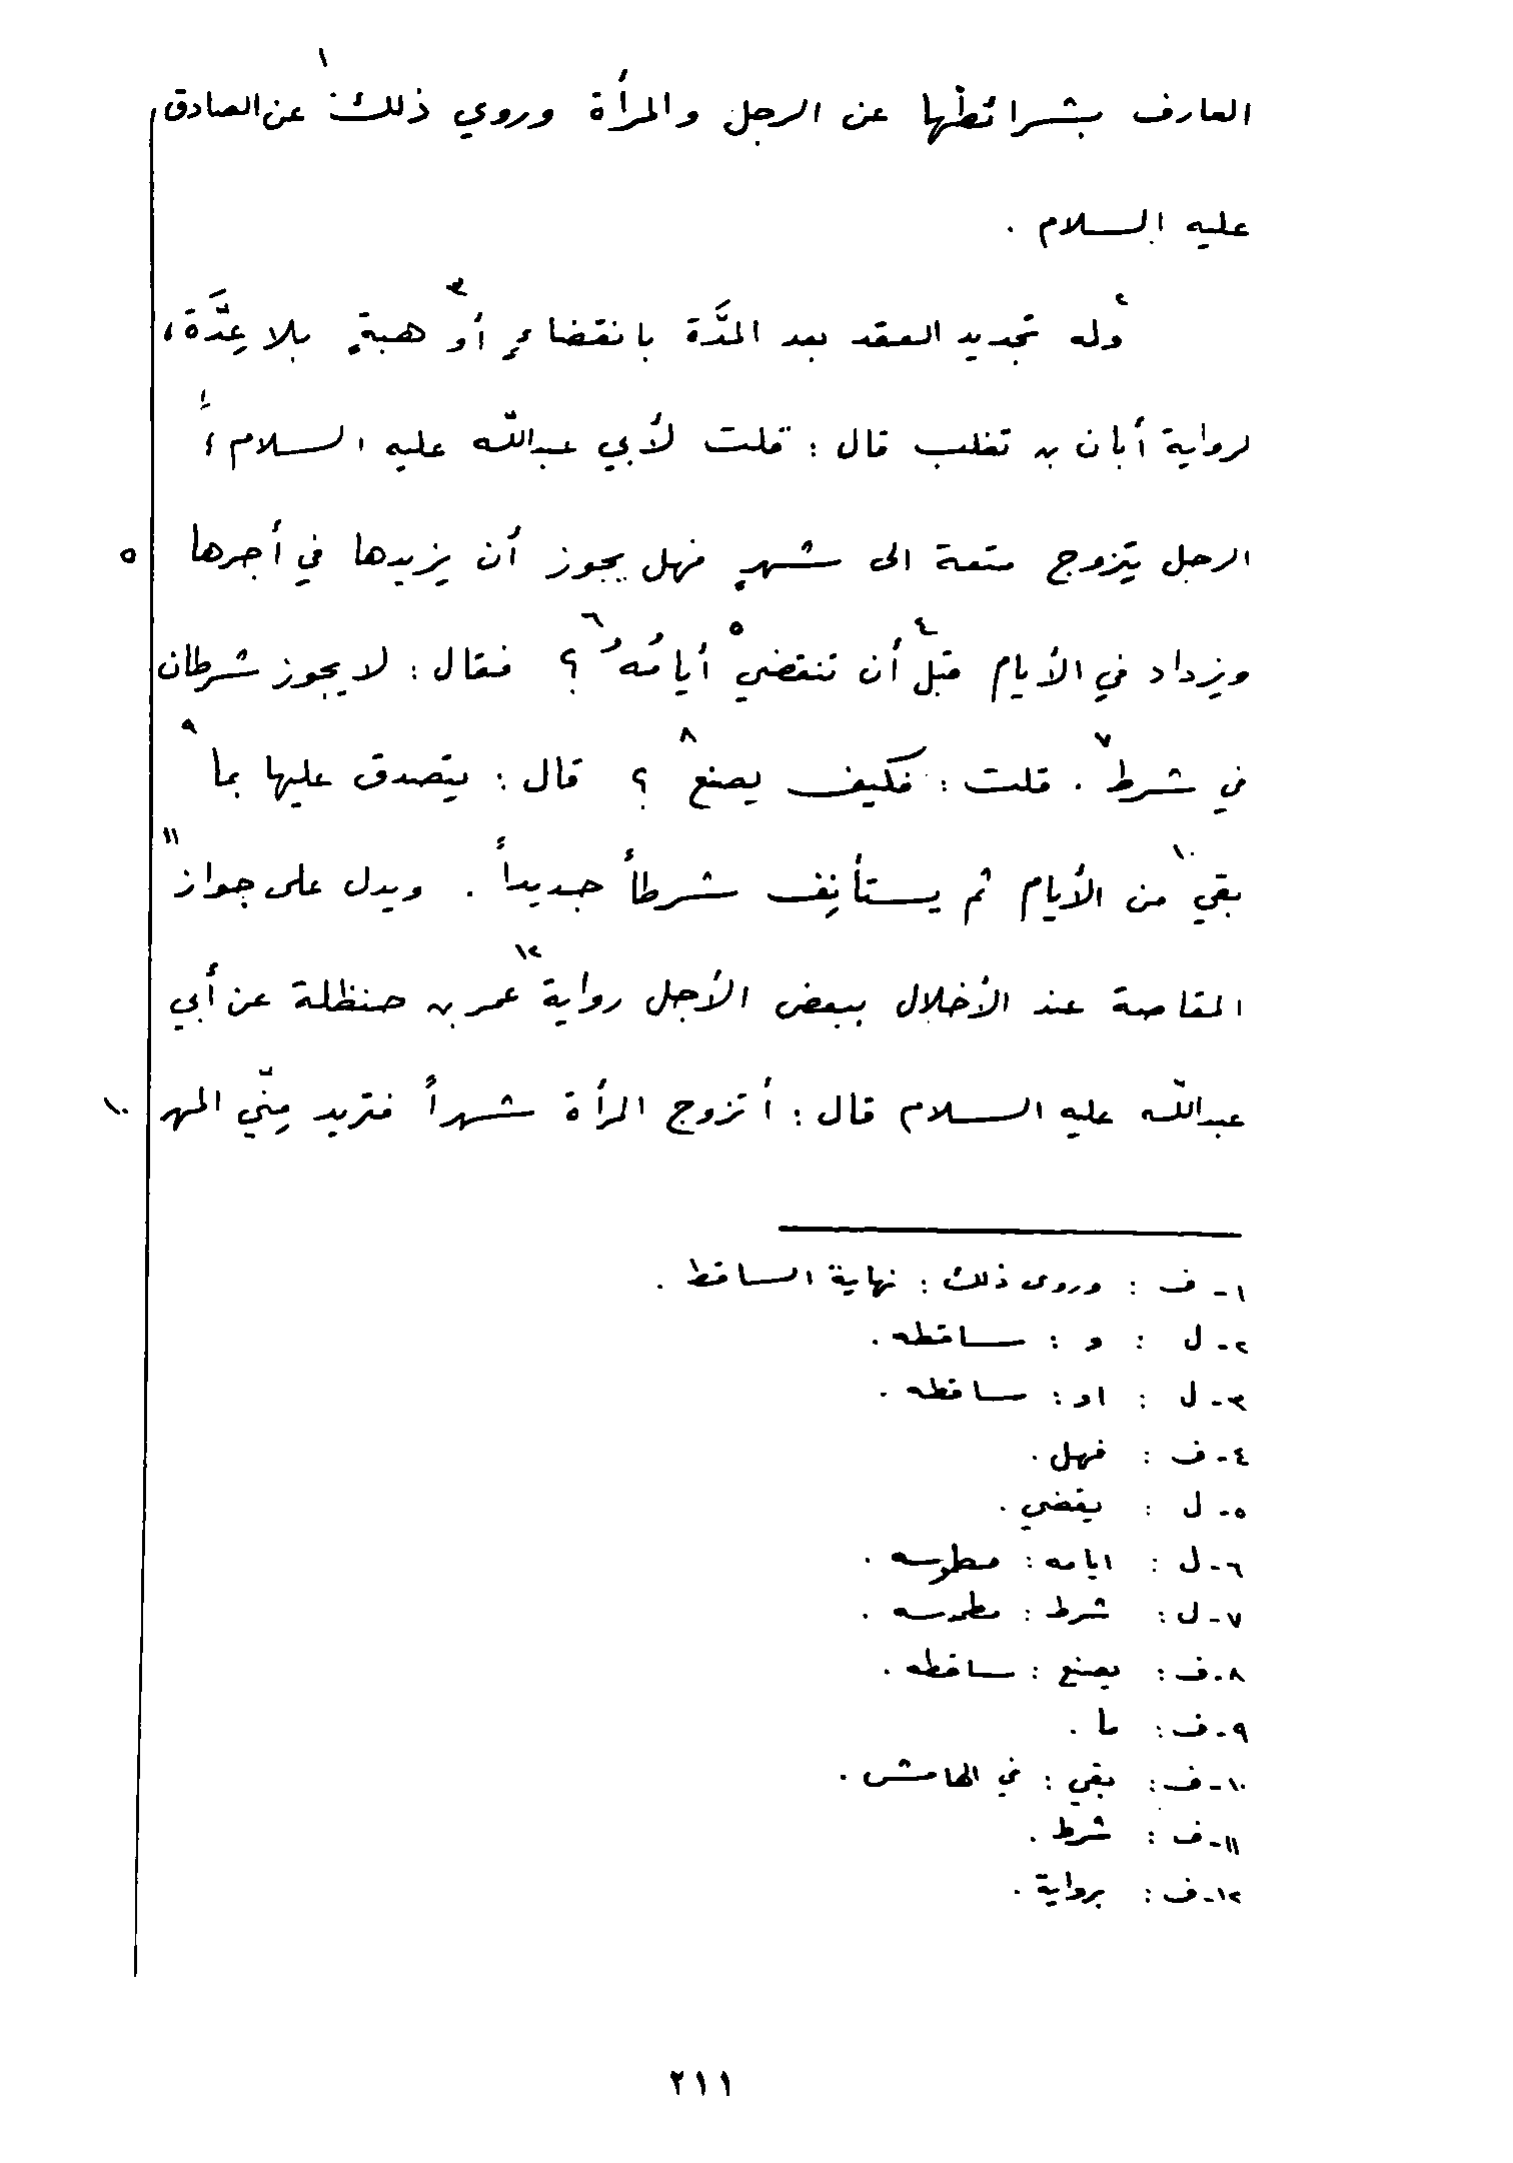 العارف بشرائطها عن الرجل والمرأة وروي ذلك١ عن الصادق
عليه السلام .
٢وله تجديد العقد بعد المدَّة بانقضاءٍ أو٣ هبةٍ بلا عِدَّة،
لرواية أبان بن تغلب قال : قلت لأبي عبدالله عليه السلام ؛
الرجل يتزوج متعة الى شهرٍ فهل يجوز أن يزيدها في أجرها ٥
ويزداد في الأيام قبل٤ أن تنقضي٥ أيامُهُ٦ ؟ فقال : لا يجوز شرطان
في شرط٧ . قلت : فكيف يصنع٨ ؟ قال : يتصدق عليها بما٩
بقي١٠ من الأيام ثم يستأنِف شرطاً جديداً . ويدل على جواز١١
المقاصة عند الأخلال ببعض الأجل رواية١٢ عمر بن حنظلة عن أبي
عبدالله عليه السلام قال : أتزوج المرأة شهراً فتريد مِنّي المهر ١٠
١- ف : وروى ذلك : نهاية الساقط .
٢- ل : و : ساقطه .
٣- ل : او : ساقطه .
٤- ف : فهل .
٥- ل : يقضي .
٦- ل : ايامه : مطموسه .
٧- ل : شرط : مطموسه .
٨- ف : يصنع : ساقطه .
٩- ف : ما .
١٠- ف : بقي : في الهامش .
١١- ف : شرط .
١٢- ف : برواية .
٢١١